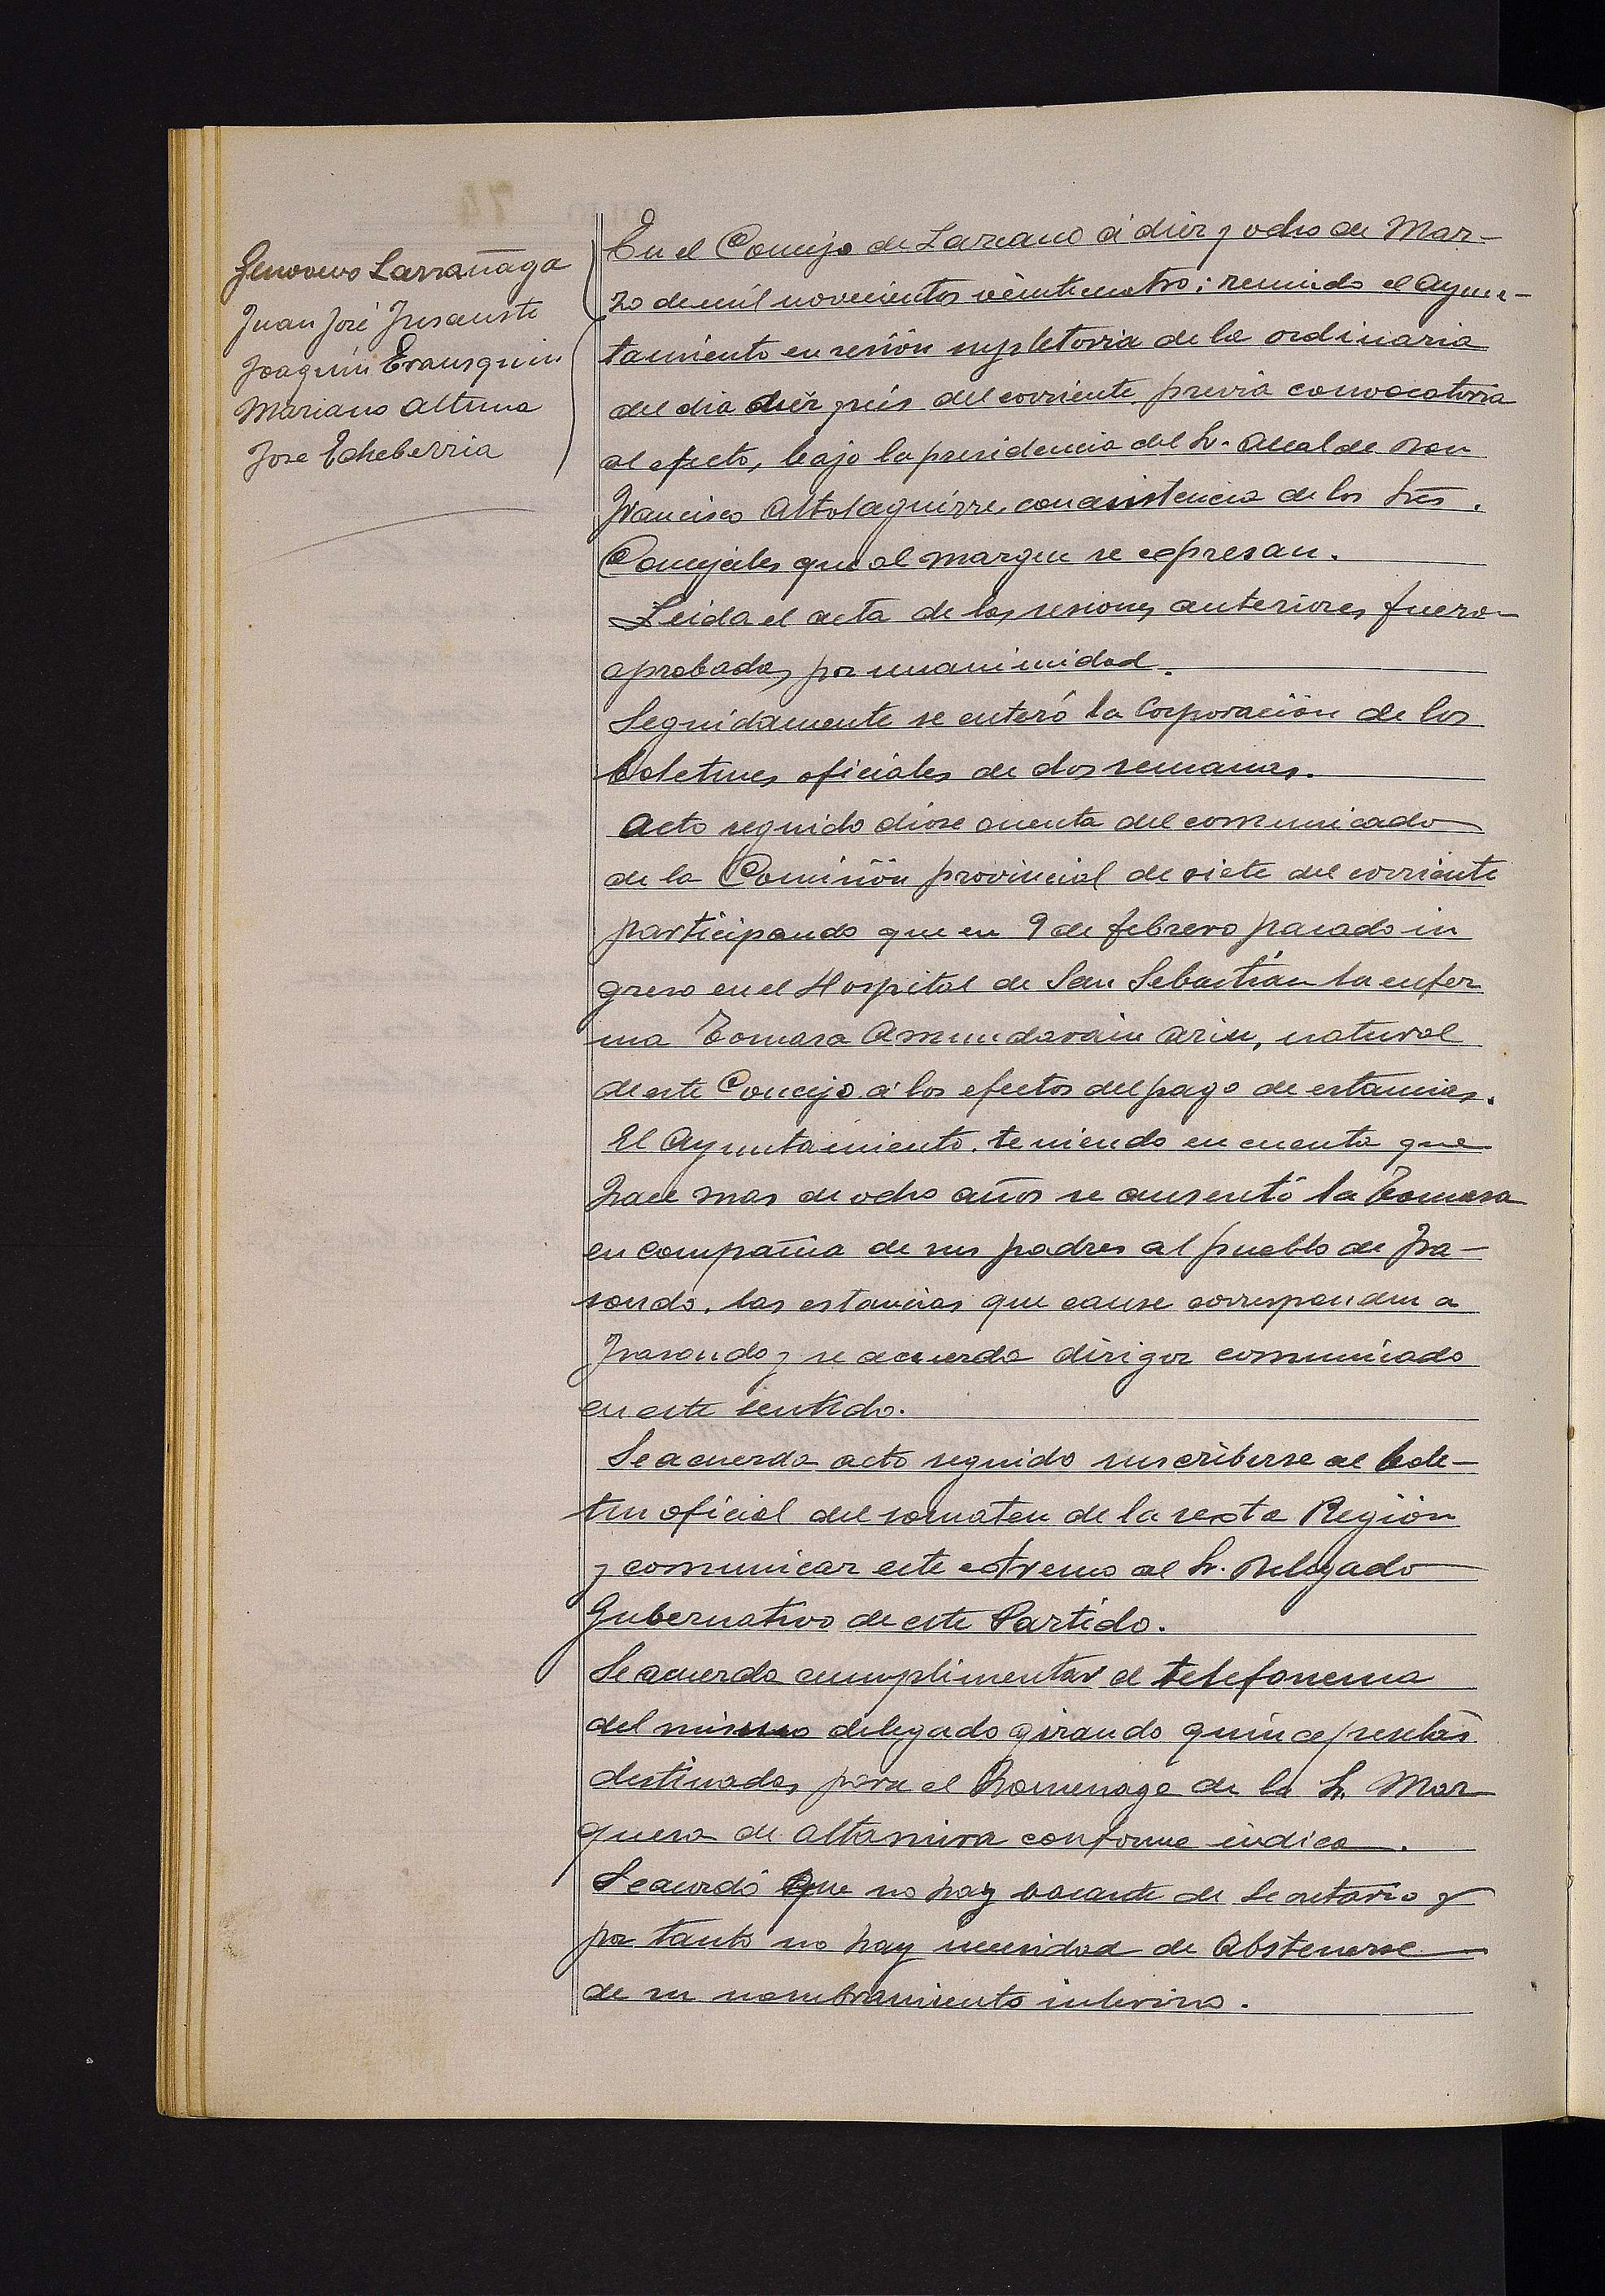 Genovevo Larrañaga
Juan José Insausti
Joaquín Erausquin
Mariano Altuna
Jose Echeberria
En el Concejo de Lazcano á diez y ocho de Mar-
zo de mil novecientos veinticuatro; reunido el Ayun-
tamiento en sesión supletoria de la ordinaria
del dia diez y seis del corriente previa convocatoria
al efecto, bajo la presidencia del Sr. Alcalde Don
Francisco Altolaguirre, con asistencia de los Sres.
Concejales que al margen se expresan.
Leida el acta de las sesiones anteriores fueron
aprobadas por unanimidad.
Seguidamente se enteró la Corporación de los
boletines oficiales de dos semanas.
Acto seguido dióse cuenta del comunicado
de la Comisión provincial de siete del corriente
participando que en 9 de febrero pasado in
greso en el Hospital de San Sebastián la enfer
ma Tomasa Amundarain Arin, natural
de este Concejo á los efectos del pago de estancias.
El Ayuntamiento. teniendo en cuenta que
hace mas de ocho años se ausentó la Tomasa
en compañia de sus padres al pueblo de Ira-
sondo. las estancias que cause corresponden a
Irasondo y se acuerda dirigir comunicado
en este sentido.
Se acuerda acto seguido suscribirse al bole-
tin oficial del somaten de la sexta Región
y comunicar este extremo al Sr. Delegado
Gubernativo de este Partido.
Se acuerda cumplimentar el telefonema
del mismo delegado girando quince pesetas
destinadas para el homenage de la Sr. Mar
quesa de Altamira conforme indica.
Se acordó que no hay vacante de Secretario y
por tanto no hay necesidad de Abstenerse
de su nombramiento interino.